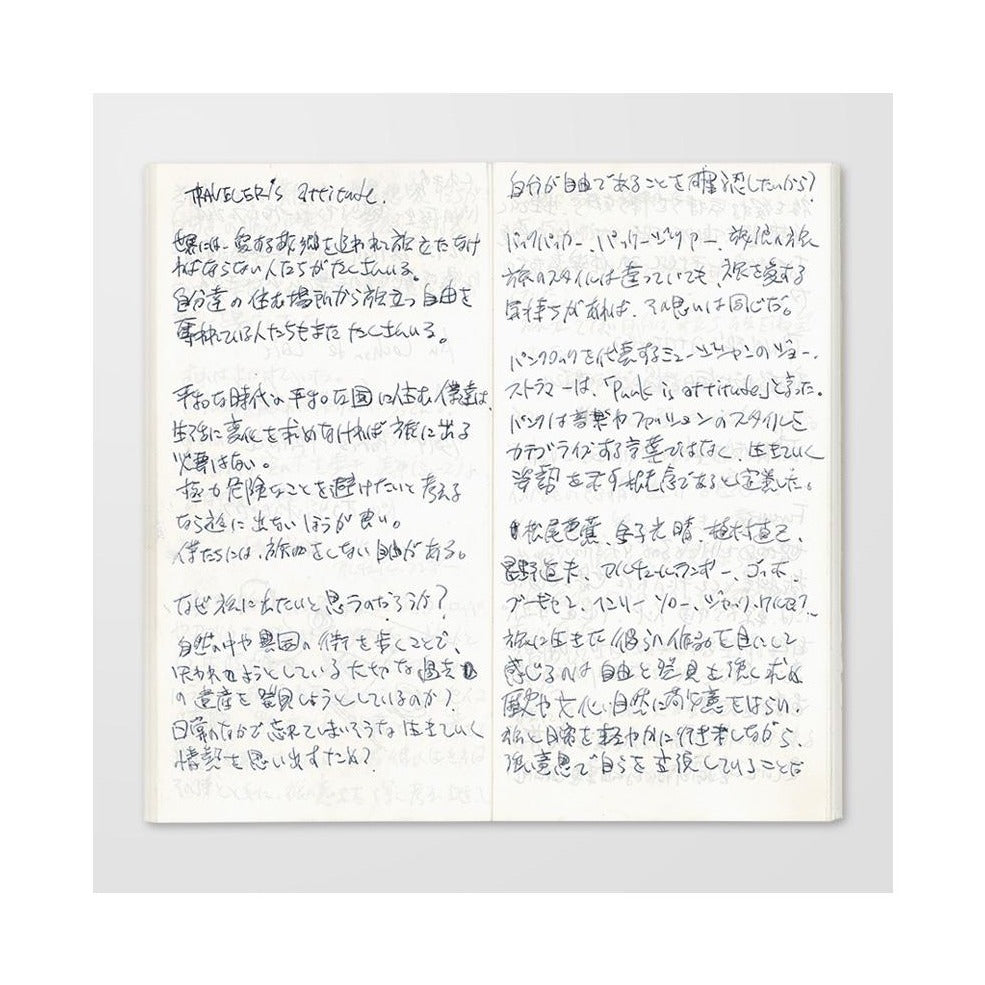 TRAVELER's attitude.
世界には、愛する故郷を追われて旅立たなけ
ればならない人たちがたくさんいる。
自分達の住む場所から旅立つ自由を
奪われている人たちもまた たくさんいる。
平和な時代の平和な国に住む僕達は、
生活に変化を求めなければ 旅に出る
必要はない。
極力危険なことを避けたいと考える
なら旅に出ないほうが良い。
僕たちには、旅をしない自由がある。
なぜ旅に出たいと思うのだろうか？
自然の中や異国の街を歩くことで、
失われようとしている大切な過去
の遺産を発見しようとしているのか？
日常のなかで忘れてしまいそうな 生きていく
情熱を思い出すため？
自分が自由であることを確認したいから？
バックパッカー、パッケージツアー、放浪の旅
旅のスタイルは違っていても、旅を愛する
気持ちがあれば、その思いは同じだ。
パンクロックを代表するミュージシャンのジョー・
ストラマーは、「Punk is attitude」と言った。
パンクは音楽やファッションのスタイルを
カテゴライズする言葉ではなく、生きていく
姿勢を示す概念であると定義した。
松尾芭蕉、金子光晴、植村直己、
星野道夫、アルチュール・ランボー、ゴッホ、
ブルース・ヘンリー ソロー、ジャック・ケルアック
旅に生きた彼らの作品を目にして
感じるのは 自由と発見を強く求め
歴史や文化、自然に敬意をはらい、
旅と日常を軽やかに行き来しながら、
強い意思で自らを主張していることだ